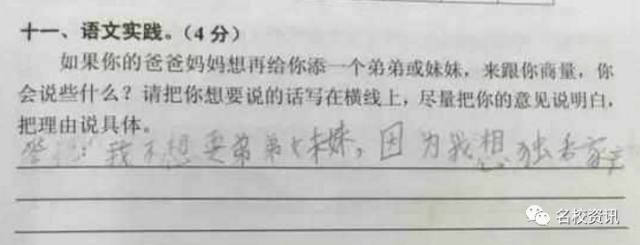 十一、语文实践。(4分)
如果你的爸爸妈妈想再给你添一个弟弟或妹妹，来跟你商量，你
会说些什么？请把你想要说的话写在横线上，尽量把你的意见说明白，
把理由说具体。
答：我不想要弟弟女未妹，因为我想独吞家产
名校资讯